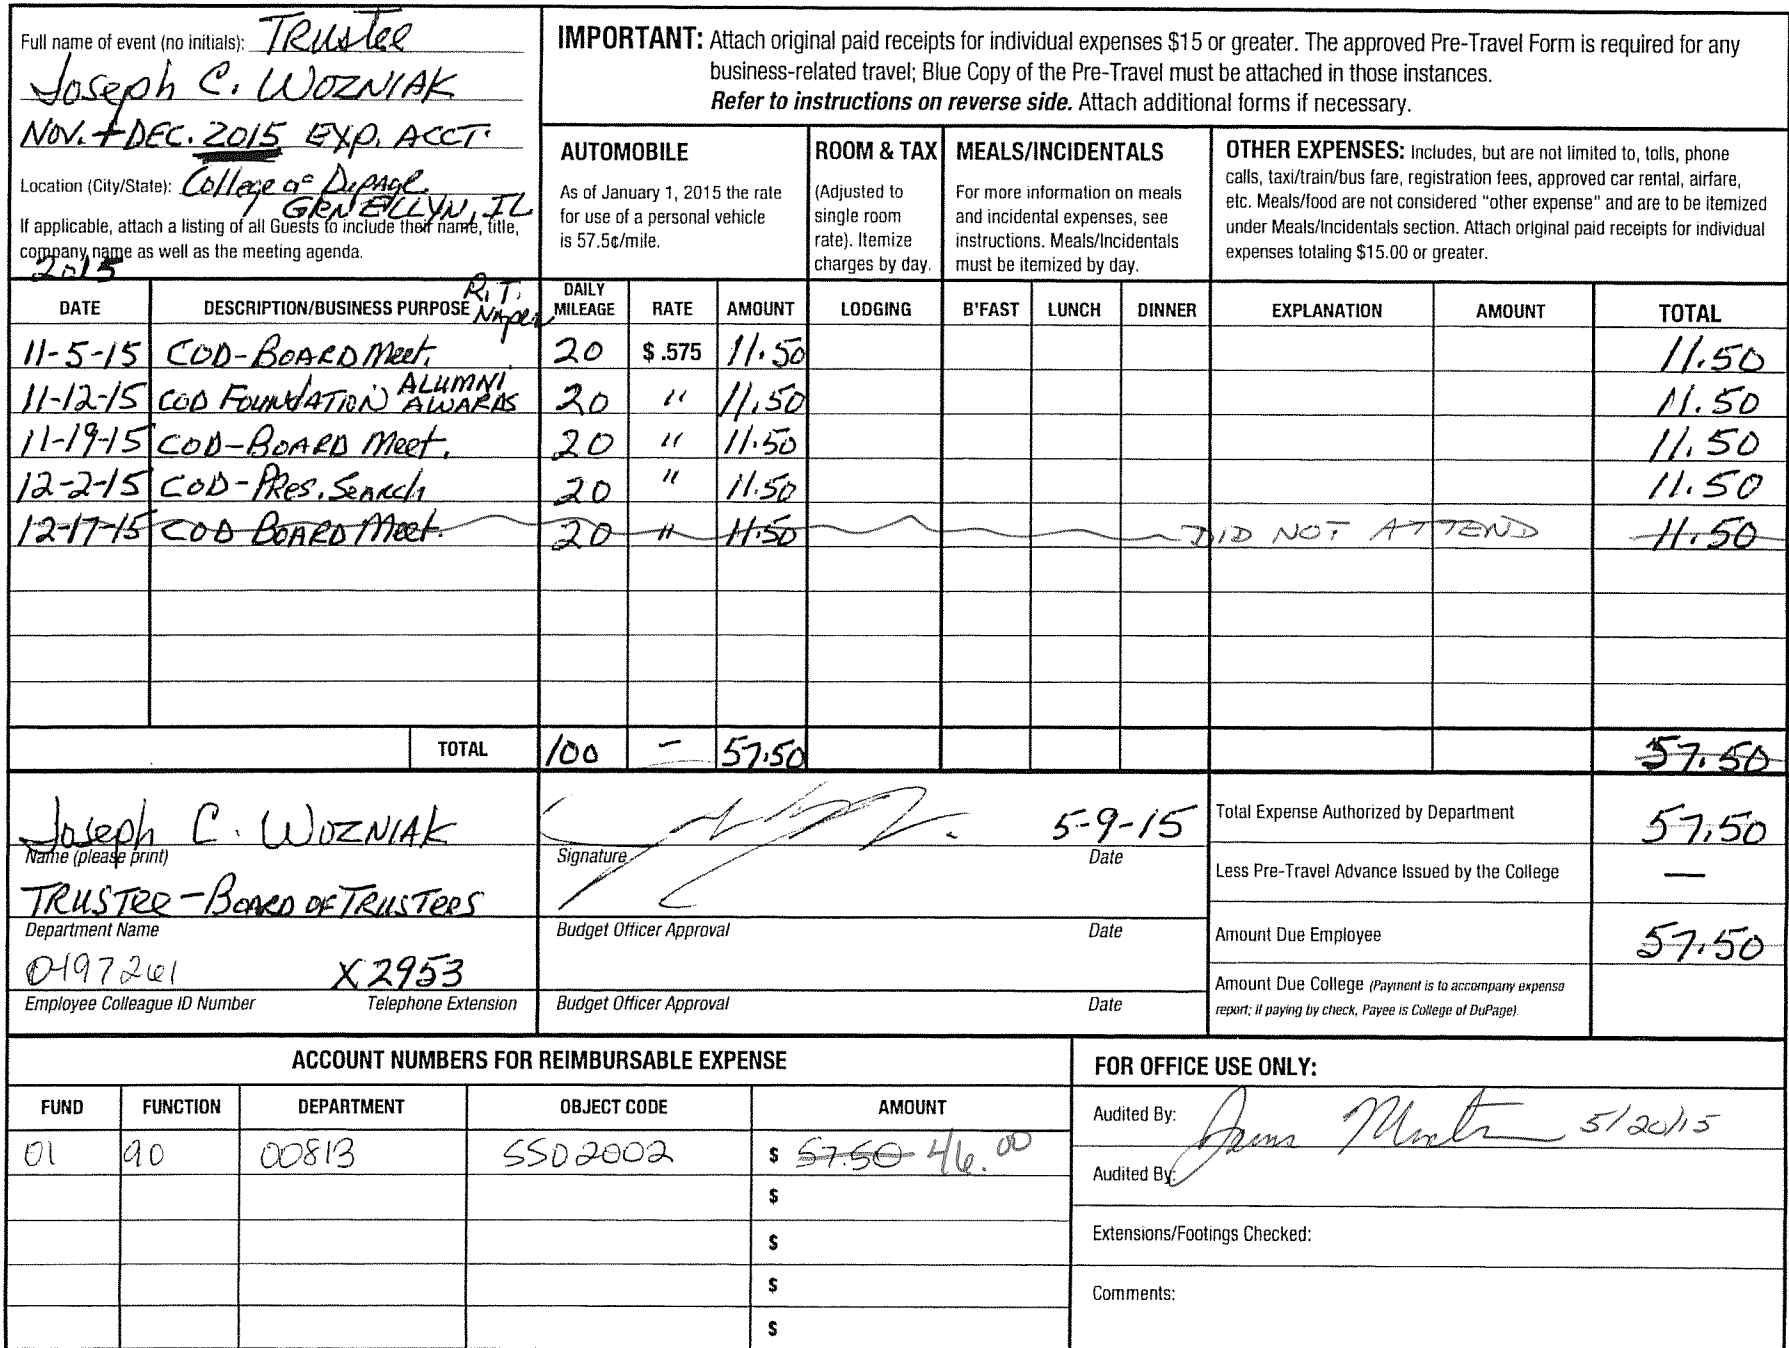 Full name of event (no initials): TRUSTee
Joseph C. WOZNIAK
NOV. + DEC. 2015 EXP. ACCT.
Location (City/State): College of DuPAGE
GRN ELLYN, IL
If applicable, attach a listing of all Guests to include their name, title,
company name as well as the meeting agenda.
2015
IMPORTANT: Attach original paid receipts for individual expenses $15 or greater. The approved Pre-Travel Form is required for any
business-related travel; Blue Copy of the Pre-Travel must be attached in those instances.
Refer to instructions on reverse side. Attach additional forms if necessary.
AUTOMOBILE
As of January 1, 2015 the rate
for use of a personal vehicle
is 57.5¢/mile.
ROOM & TAX
(Adjusted to
single room
rate). Itemize
charges by day.
MEALS/INCIDENTALS
For more information on meals
and incidental expenses, see
instructions. Meals/Incidentals
must be itemized by day.
OTHER EXPENSES: Includes, but are not limited to, tolls, phone
calls, taxi/train/bus fare, registration fees, approved car rental, airfare,
etc. Meals/food are not considered "other expense" and are to be itemized
under Meals/Incidentals section. Attach original paid receipts for individual
expenses totaling $15.00 or greater.
DATE DESCRIPTION/BUSINESS PURPOSE R.T. DAILY MILEAGE RATE AMOUNT LODGING B'FAST LUNCH DINNER EXPLANATION AMOUNT TOTAL
11-5-15 COD-BOARD Meet. 20 $ .575 11.50 11.50
11-12-15 COD FOUNDATION ALUMNI AWARDS 20 " 11.50 11.50
11-19-15 COD-BOARD Meet. 20 " 11.50 11.50
12-2-15 COD-PRES. Search 20 " 11.50 11.50
12-17-15 COD BOARD Meet. 20 " 11.50 DID NOT ATTEND 11.50
TOTAL 100 - 57.50 57.50
Joseph C. WOZNIAK
Name (please print)
TRUSTee - BOARD OF TRUSTees
Department Name
0197261 X2953
Employee Colleague ID Number Telephone Extension
5-9-15
Signature Date
Budget Officer Approval Date
Budget Officer Approval Date
Total Expense Authorized by Department 57.50
Less Pre-Travel Advance Issued by the College —
Amount Due Employee 57.50
Amount Due College (Payment is to accompany expense
report; if paying by check, Payee is College of DuPage).
ACCOUNT NUMBERS FOR REIMBURSABLE EXPENSE
FUND FUNCTION DEPARTMENT OBJECT CODE AMOUNT
01 90 00813 5502002 $ 57.50 46.00
$
$
$
$
FOR OFFICE USE ONLY:
Audited By: 5/20/15
Audited By:
Extensions/Footings Checked:
Comments: